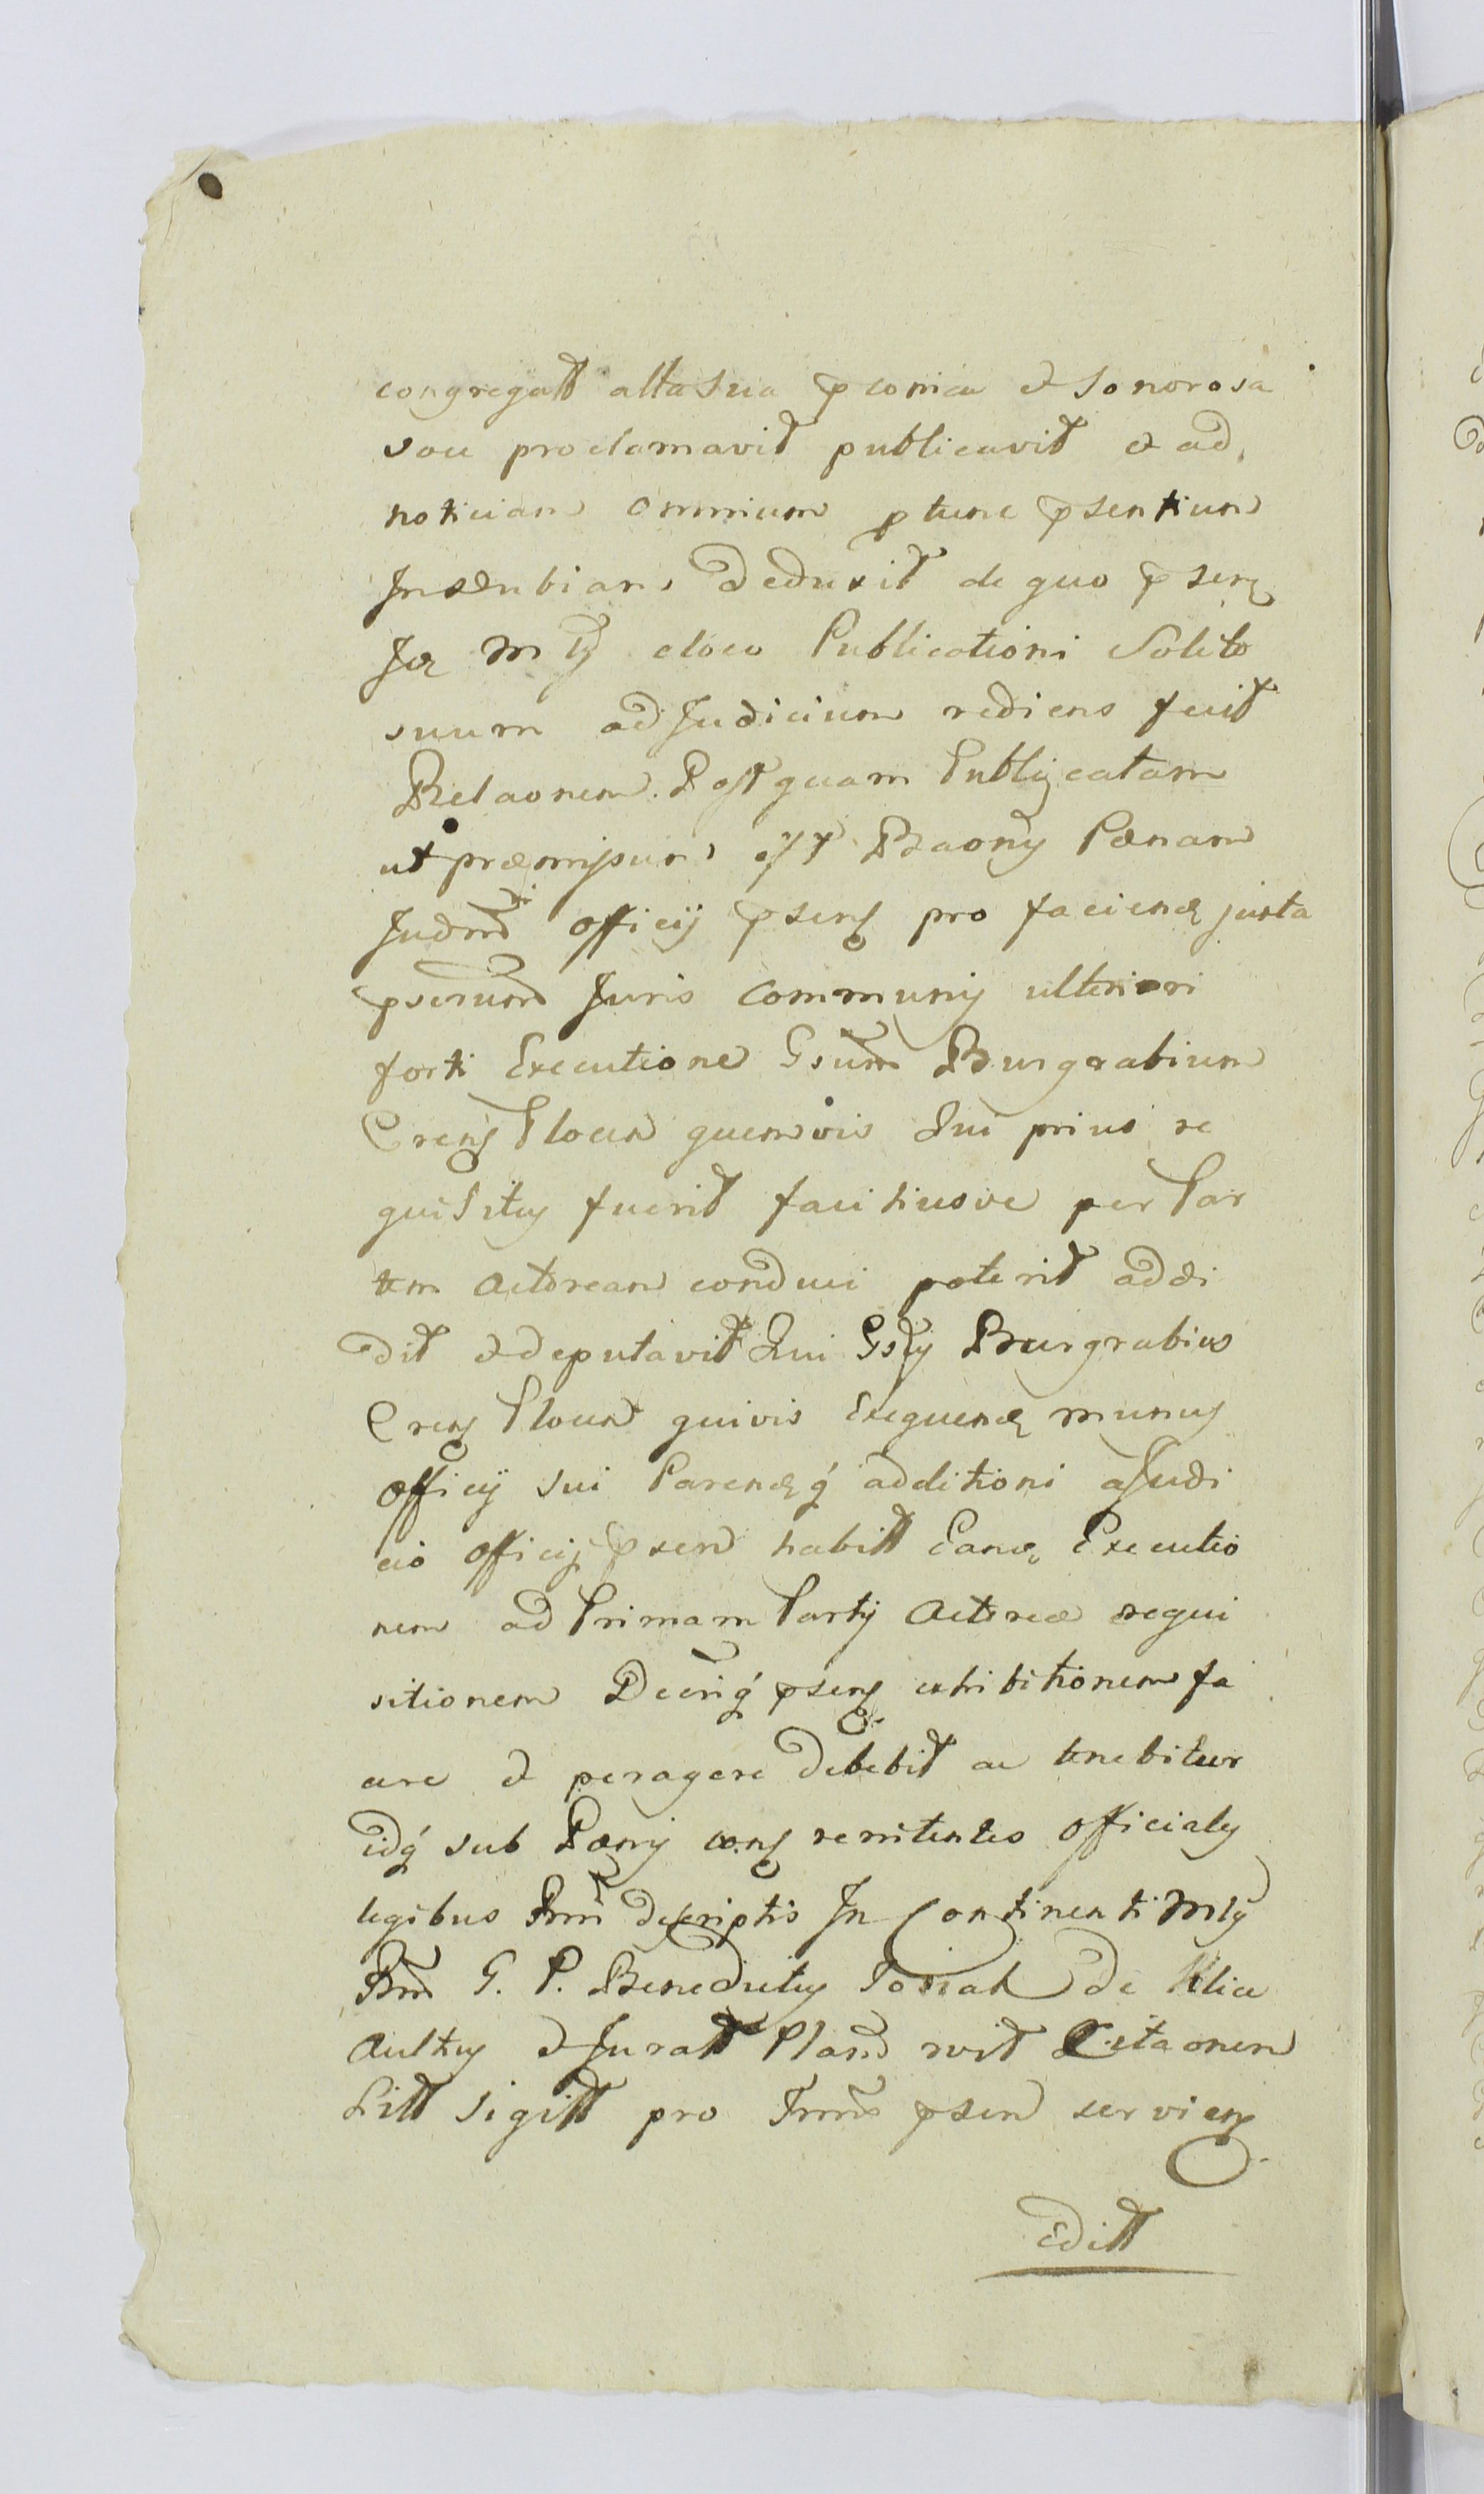 congregatt alta sua pconica et sonorosa
voce proclamavit publicavit et ad
noticiam omnium ptunc psentium
Indubiam deduxit de quo psens
Idq Mty eloco Publicationi Solito
suum ad Judicium rediens fecit
Relaonem. Postquam Publicatam
ut præmissum est Baonis Pænam
Judm officij psens pro faciend juxta
pscrium Juris communis ulteriori
forti Executione Gsum Burgrabium
Crens Plocen quemvis Qui prius re
quisitus fuerit faciliusve per Par
tem Actoream conduci poterit addi
dit et deputavit Qui Gsus Burgrabius
Crens Plocen quivis Exequend munus
officij sui Parendq additioni a Judi
cio officij psen habitt Eand Executio
nem ad Primam Partis Actoreæ requi
sitionem Decriq psens exhibitionem fa
cere et peragere debebit ac tenebitur
idq sub Pænis cong renitentes officiales
legibus Rmi descriptis In Continenti Mtis
Rm G. P. Benedictus de
Aulicus et Juratt Pland rvit Citaonem
Litt sigitt pro Trm psen serviens
Editt